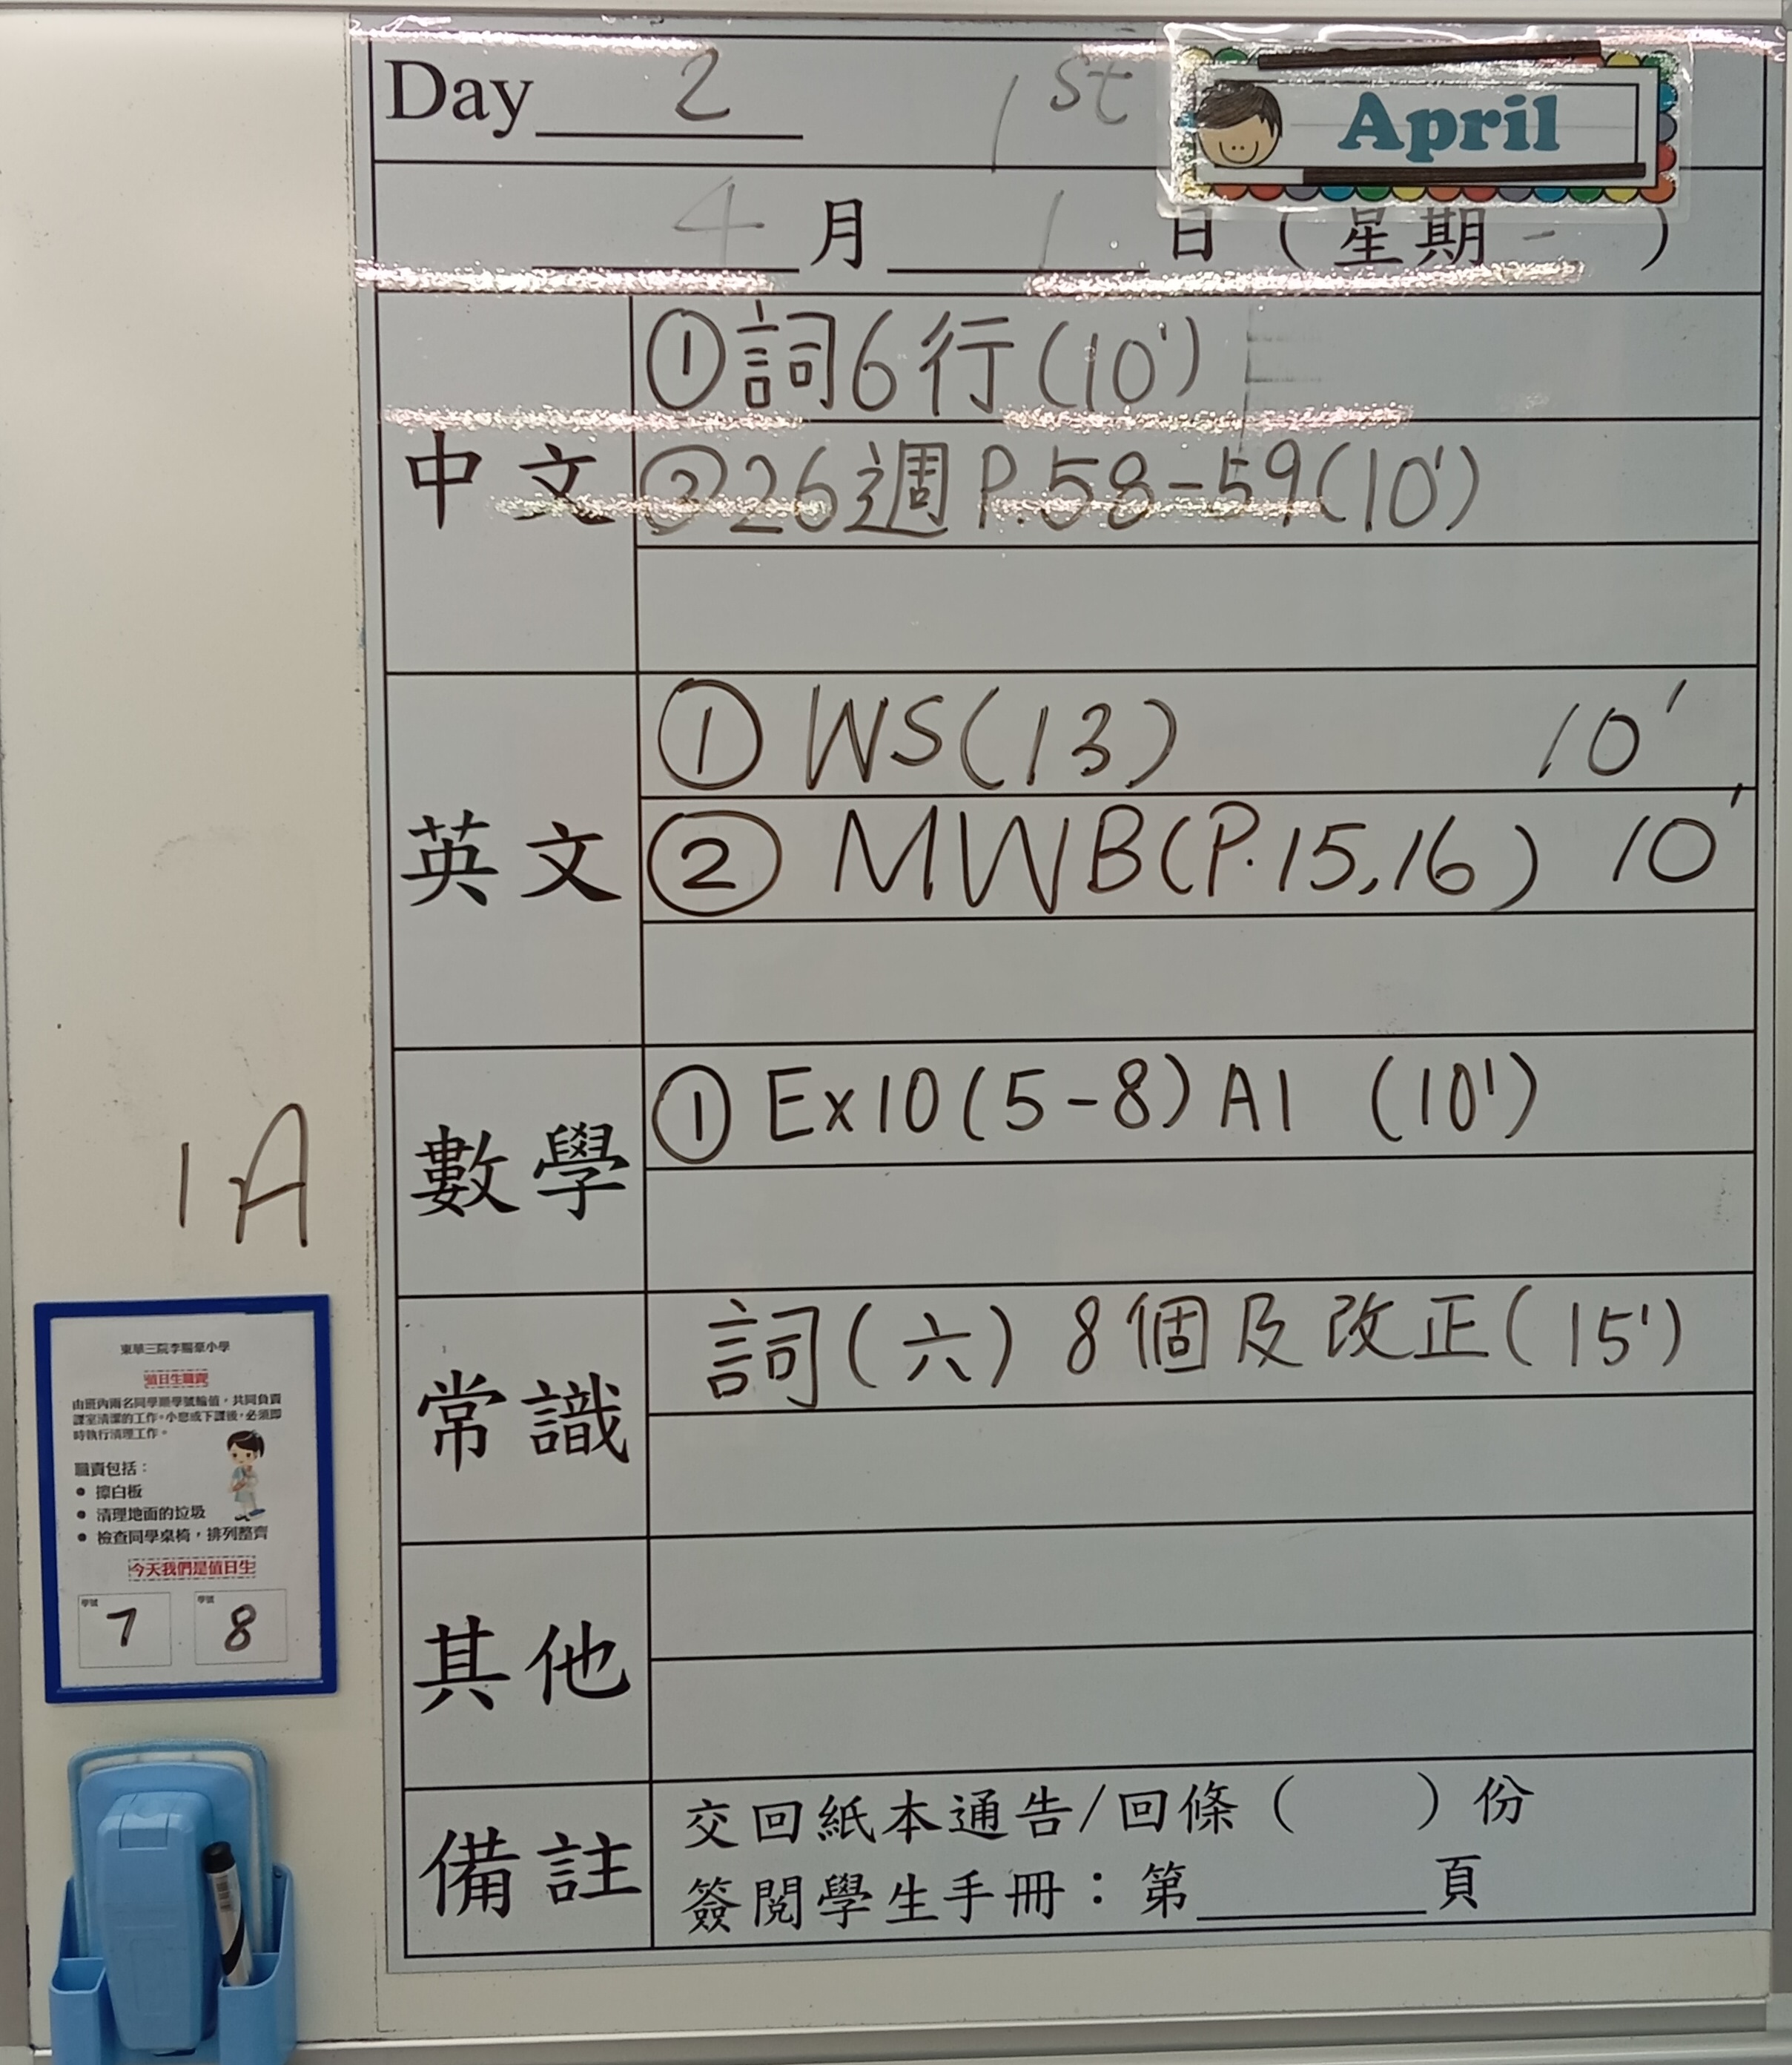 Day 2 1st April
4月1日(星期一)
中文
①詞6行(10')
②26週P.58-59(10')
英文
① WS(13) 10'
② MWB(P.15,16) 10'
數學
① Ex10(5-8)A1 (10')
常識
詞(六)8個及改正(15')
其他
備註
交回紙本通告/回條( )份
簽閱學生手冊:第 頁
1A
東華三院李賜豪小學
值日生職責
由班內兩名同學順學號輪值,共同負責
課室清潔的工作。小息或下課後,必須即
時執行清理工作。
職責包括:
• 擦白板
• 清理地面的垃圾
• 檢查同學桌椅,排列整齊
今天我們是值日生
學號 7 學號 8